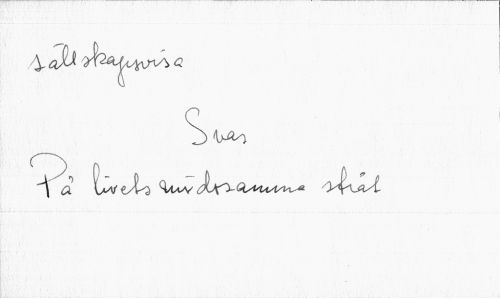 sällskapsvisa
Svar
På livets mödosamma stråt